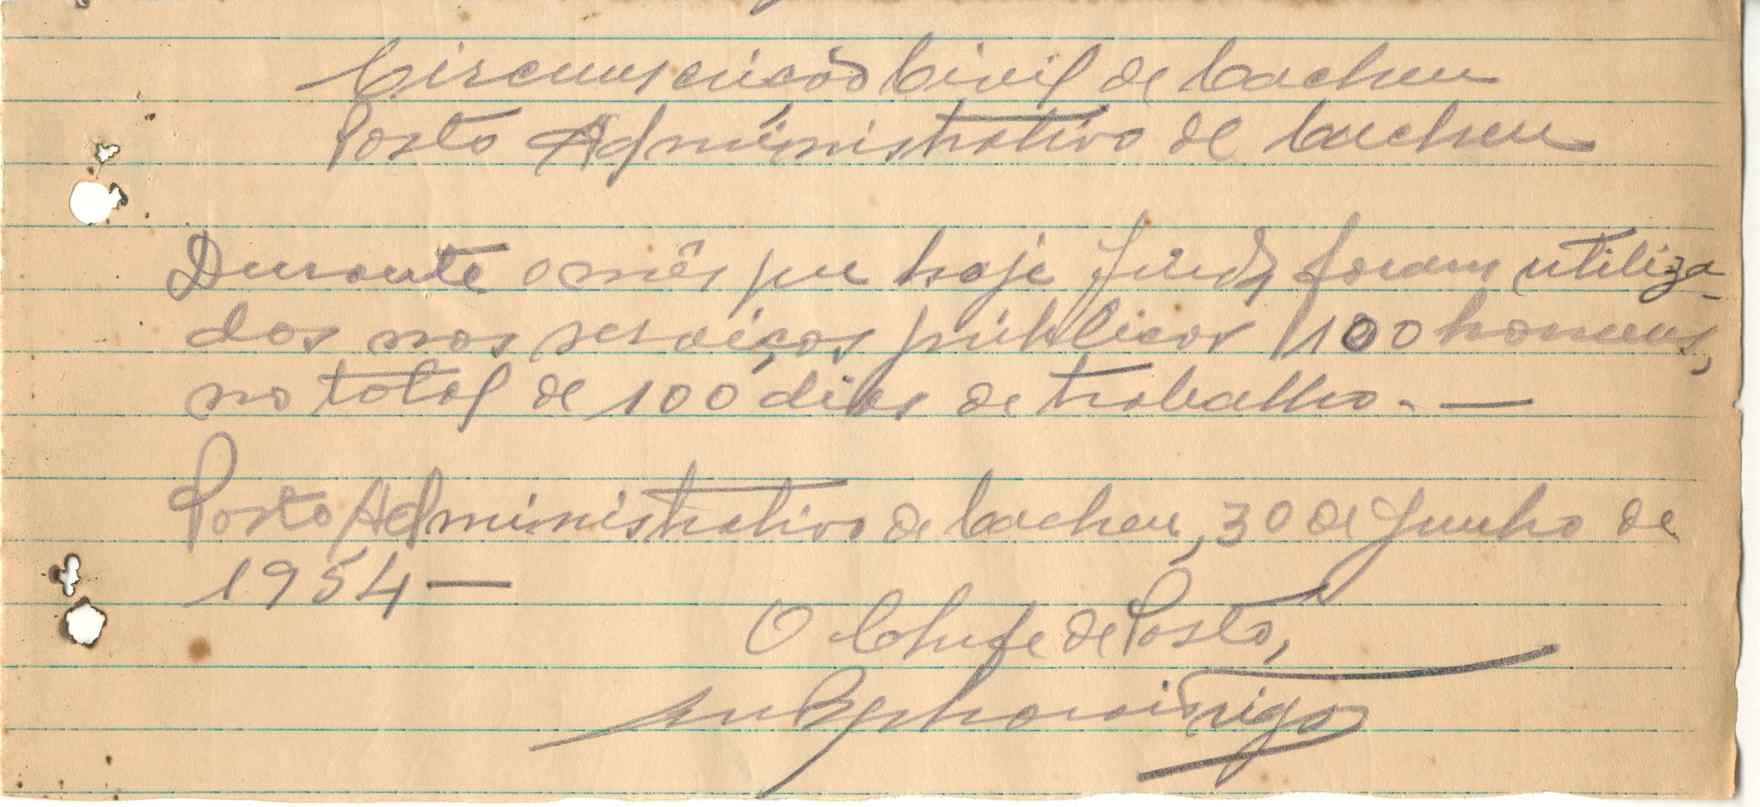 Circunscrição Civil de Cacheu
Posto Administrativo de Cacheu
Durante o mês que hoje finda, foram utiliza-
dos nos serviços públicos 100 homens,
no total de 100 dias de trabalho. —
Posto Administrativo de Cacheu, 30 de Junho de
1954 —
O Chefe de Posto,